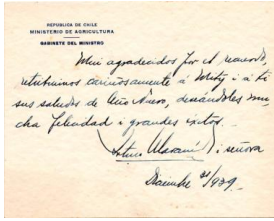 REPUBLICA DE CHILE
MINISTERIO DE AGRICULTURA
GABINETE DEL MINISTRO
Mui agradecidos por el recuerdo,
retribuimos cariñosamente á i a ti
sus saludos de Año Nuevo, deseándoles mu-
cha felicidad i grandes éxitos.
Arturo i señora
Diciembre 31/939.